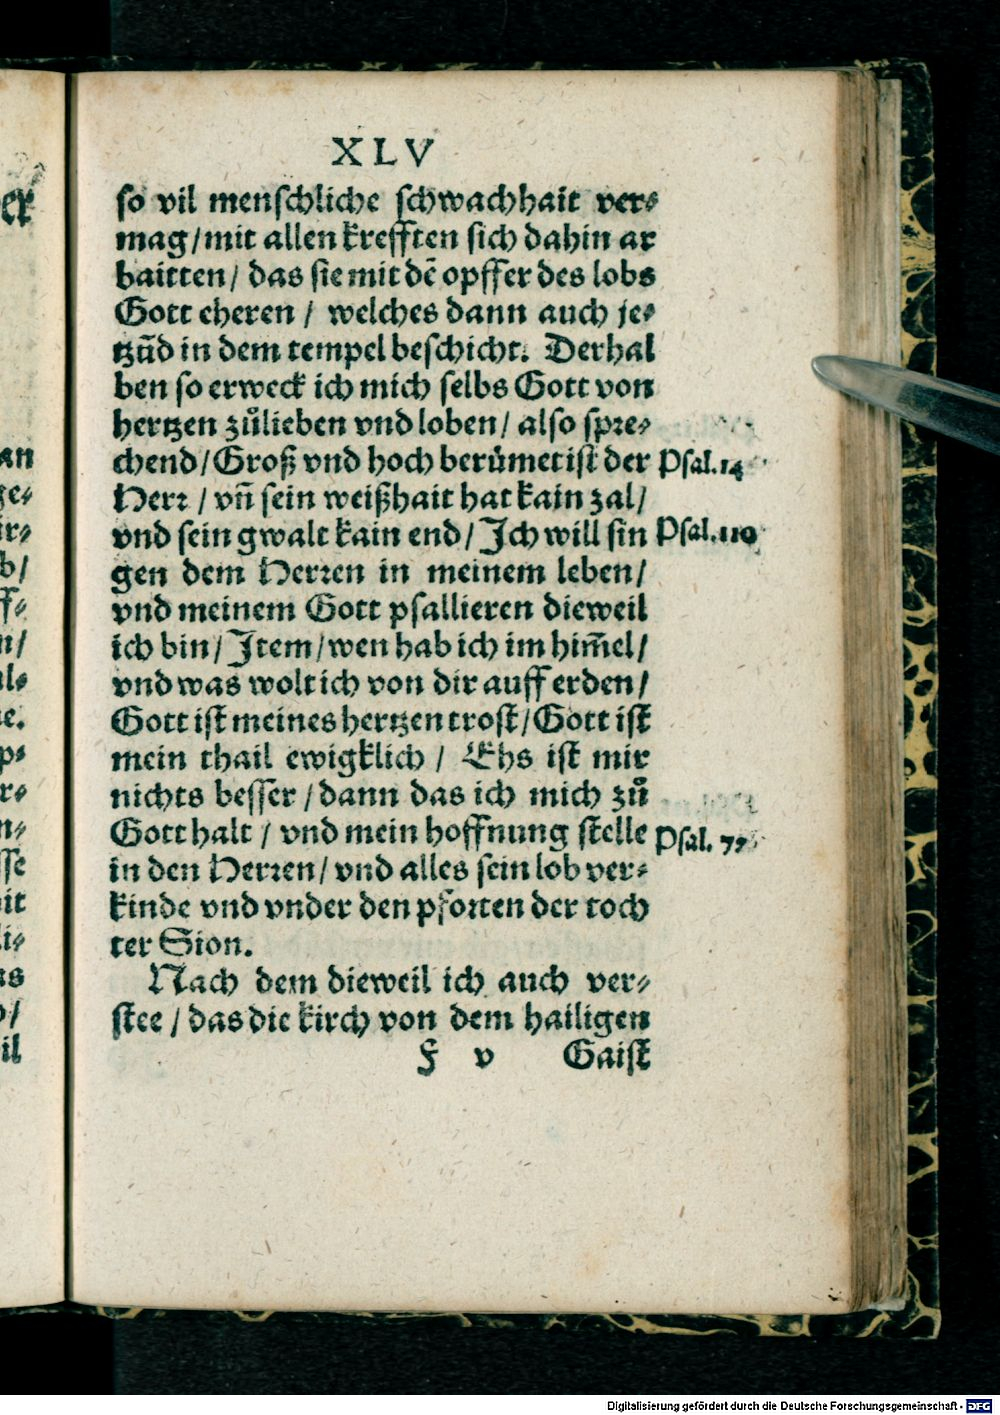 XLV
so vil menschliche schwachait ver⸗
mag/mit allen krefften sich dahin ar
baitten/ das sie mit dē opffer des lobs
Gott eheren / welches dann auch je⸗
tzūd in dem tempel beschicht. Derhal
ben so erweck ich mich selbs Gott von
hertzen zůlieben vnd loben/ also spre⸗
chend/Groß vnd hoch berůmet ist der Psal.14
Herr / vñ sein weißhait hat kain zal/
vnd sein gwalt kain end/ Ich will sin Psal.110
gen dem Herren in meinem leben/
vnd meinem Gott psallieren dieweil
ich bin/ Item/wen hab ich im him̄el/
vnd was wolt ich von dir auff erden/
Gott ist meines hertzen trost/Gott ist
mein thail ewigklich / Ehs ist mir
nichts besser/dann das ich mich zů
Gott halt / vnd mein hoffnung stelle Psal. 7
in den Herren/ vnd alles sein lob ver⸗
kinde vnd vnder den pforten der toch
ter Sion.
Nach dem dieweil ich auch ver⸗
stee / das die kirch von dem hailigen
F v Gaist
Digitalisierung gefördert durch die Deutsche Forschungsgemeinschaft - DFG